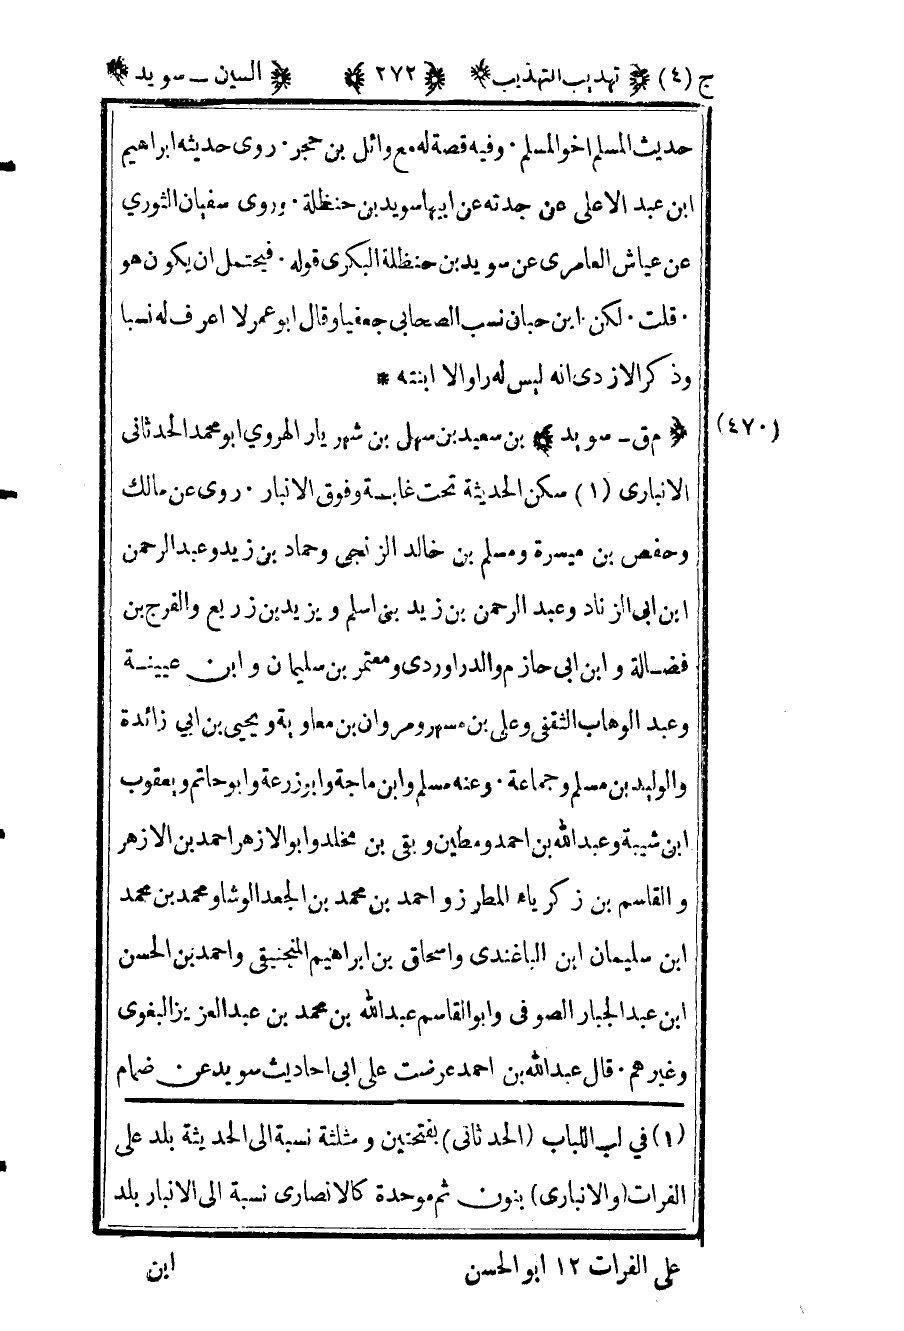 ج (٤) ﴿ تهذيب التهذيب ﴾ ﴿ ٢٧٢ ﴾ ﴿ السين ــ سويد ﴾
حديث المسلم اخو المسلم ٠ وفيه قصة له مع وائل بن حجر ٠ روى حديثه ابراهيم
ابن عبد الاعلى عن جدته عن ابيها سويد بن حنظلة ٠ وروى سفيان الثوري
عن عياش العامرى عن سويد بن حنظلة البكرى قوله ٠ فيحتمل ان يكون هو
٠ قلت ٠ لكن ابن حبان نسب الصحابي جعفيا وقال ابو عمر لا اعرف له نسبا
وذكر الازدى انه ليس له راو الا ابنته *
(٤٧٠) ﴿ م ق ــ سويد ﴾ بن سعيد بن سهل بن شهريار الهروي ابو محمد الحدثانى
الانبارى (١) سكن الحديثة تحت غابة وفوق الانبار ٠ روى عن مالك
وحفص بن ميسرة ومسلم بن خالد الزنجى وحماد بن زيد وعبد الرحمن
ابن ابى الزناد وعبد الرحمن بن زيد بن اسلم ويزيد بن زريع والفرج بن
فضالة و ابن ابى حازم والدراوردى ومعتمر بن سليمان و ابن عيينة
وعبد الوهاب الثقفى وعلى بن مسهر ومروان بن معاوية ويحيى بن ابي زائدة
والوليد بن مسلم وجماعة ٠ وعنه مسلم وابن ماجة وابو زرعة وابو حاتم ويعقوب
ابن شيبة وعبد الله بن احمد ومطين وبقى بن مخلد وابو الازهر احمد بن الازهر
و القاسم بن زكرياء المطرز و احمد بن محمد بن الجعد الوشا ومحمد بن محمد
ابن سليمان ابن الباغندى واسحاق بن ابراهيم المنجنيقى واحمد بن الحسن
ابن عبد الجبار الصوفى وابو القاسم عبد الله بن محمد بن عبد العزيز البغوى
وغيرهم ٠ قال عبد الله بن احمد عرضت على ابى احاديث سويد عن ضمام
(١) في لب اللباب (الحدثانى) بفتحتين و مثلثة نسبة الى الحديثة بلد على
الفرات (والانبارى) بنون ثم موحدة كالانصارى نسبة الى الانبار بلد
على الفرات ١٢ ابو الحسن
ابن